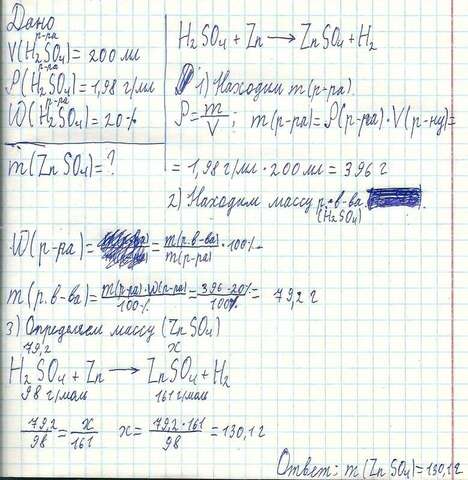 Дано
V(H2SO4) р-ра = 200 мл
ρ(H2SO4) р-ра = 1,98 г/мл
W(H2SO4) р-ра = 20%
m(ZnSO4) = ?
H2SO4 + Zn → ZnSO4 + H2
1) Находим m(р-ра).
ρ = m/V; m(р-ра) = ρ(р-ра) · V(р-ну) =
= 1,98 г/мл · 200 мл = 396 г
2) Находим массу р. в-ва
(H2SO4)
W(р-ра) = = m(р.в-ва)/m(р-ра) · 100%
m(р.в-ва) = m(р-ра)·W(р-ра)/100% = 396·20%/100% = 79,2 г
3) Определяем массу (ZnSO4)
79,2 x
H2SO4 + Zn → ZnSO4 + H2
98 г/моль 161 г/моль
79,2/98 = x/161 x = 79,2·161/98 = 130,1 г
Ответ: m(ZnSO4) = 130,1 г